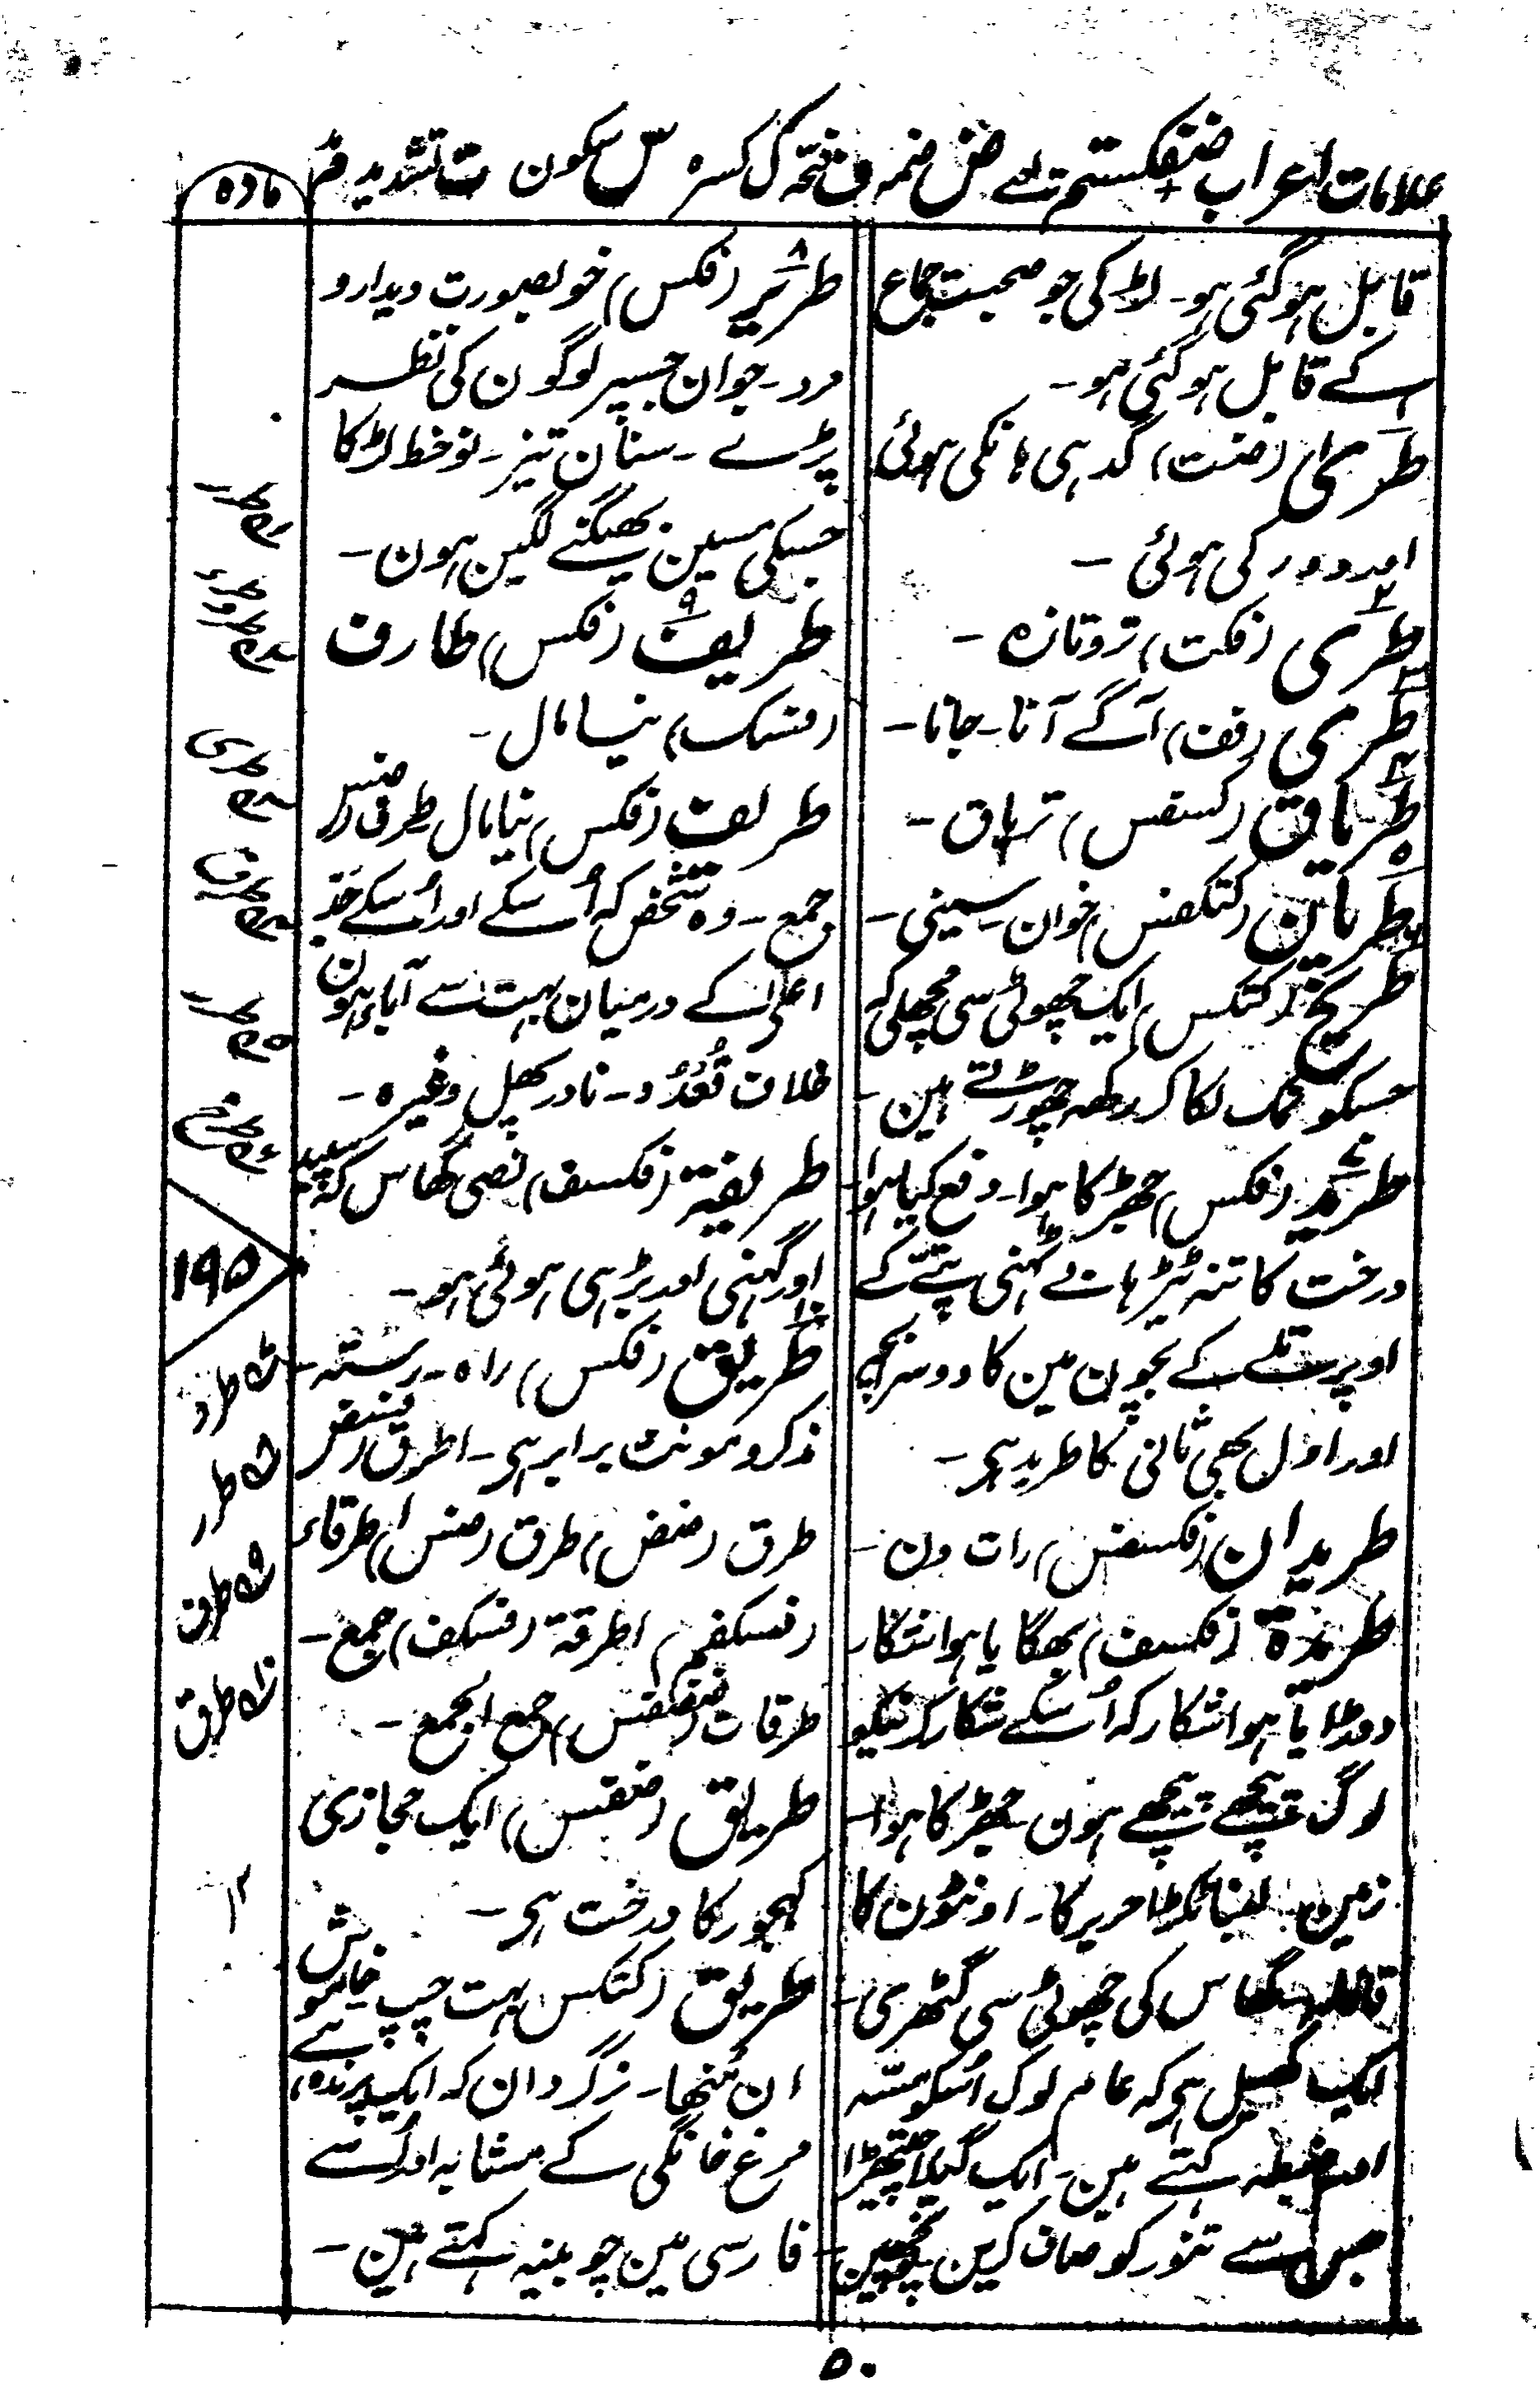 علامات اعراب ضفکستم تے ض ضمہ ف فتحہ ک کسرہ س سکون ت تشدید م مد
مادہ
قابل ہوگئی ہو۔ لڑکی جو صحبت جماع
کے قابل ہوگئی ہو۔
طری (ضت) گدہی ہانکی ہوئی
اور دور کی ہوئی ۔
طری (فکت) تروتازہ ۔
طری (فف) آگے آنا۔ جانا۔
طریاق (کسفس) تریاق ۔
طریان (کتکفس) خوان۔ سینی ۔
طریخ (کتکس) ایک چھوٹی سی مچھلی کہ
جسکو نمک لگا کر رکھہ چھوڑتے ہین ۔
طرید (فکس) جھڑکا ہوا۔ دفع کیا ہوا۔
درخت کا تنہ ٹیڑہا بے ٹہنی پتے کے
اوپر تلے کے بچون مین کا دوسرا بچہ
اور اول بھی ثانی کا طرید ہی ۔
طریدان (فکسفس) رات دن ۔
طریدۃ (فکسف) بھگایا ہوا شکار
دوڑایا ہوا شکار کہ اُسکے شکار کرنیکو
لوگ پیچھے پیچھے ہون جھڑکا ہوا۔
زمین۔ لنبا ٹکڑا حریر کا۔ اونٹون کا
قافلہ۔ گھاس کی چھوٹی سی گٹھری ۔
ایک کھیل ہی کہ عام لوگ اُسکو مسّہ
اور ضبطہ کہتے ہین۔ ایک گیلا چتھڑا
جس سے تنور کو صاف کرین پونچھین ۔
طریر (فکس) خوبصورت دیدارو
مرد۔ جوان جسپر لوگون کی نظر
پڑے ۔ سنان تیز۔ نوخط لڑکا
جسکی مسین بھیگنے لگین ہون ۔
طریف (فکس) طارف
(فسک) نیا مال ۔
طریف (فکس) نیا مال طرف (ضس)
جمع ۔ وہ شخص کہ اُسکے اور اُسکے جد
اعلیٰ کے درمیان بہت سے آبا ہون
خلاف قُعدُد ۔ نادر پھل وغیرہ ۔
طریفۃ (فکسف) نصی گھاس کہ سپید
اور گہنی اور بڑہی ہوئی ہو ۔
طریق (فکس) راہ۔ رستہ ۔
مذکر و مونث برابر ہی ۔ اطرق (فسض)
طرق (ضض) طرق (ضس) طرقاء
(فسکفم) اطرقۃ (فسکف) جمع ۔
طرقات (ضضفس) جمع الجمع ۔
طریق (ضفس) ایک مجازی
کھجور کا درخت ہی ۔
طریق (کتکس) بہت چپ خاموش
ان مُنہا ۔ نر گردان کہ ایک پرندہ ہے
مرغ خانگی کے مشابہ اور اُسے
فارسی مین چوبینہ کہتے ہین ۔
۱۹۵
طرد
طرر
طرف
طرق
۱۲
۵۰